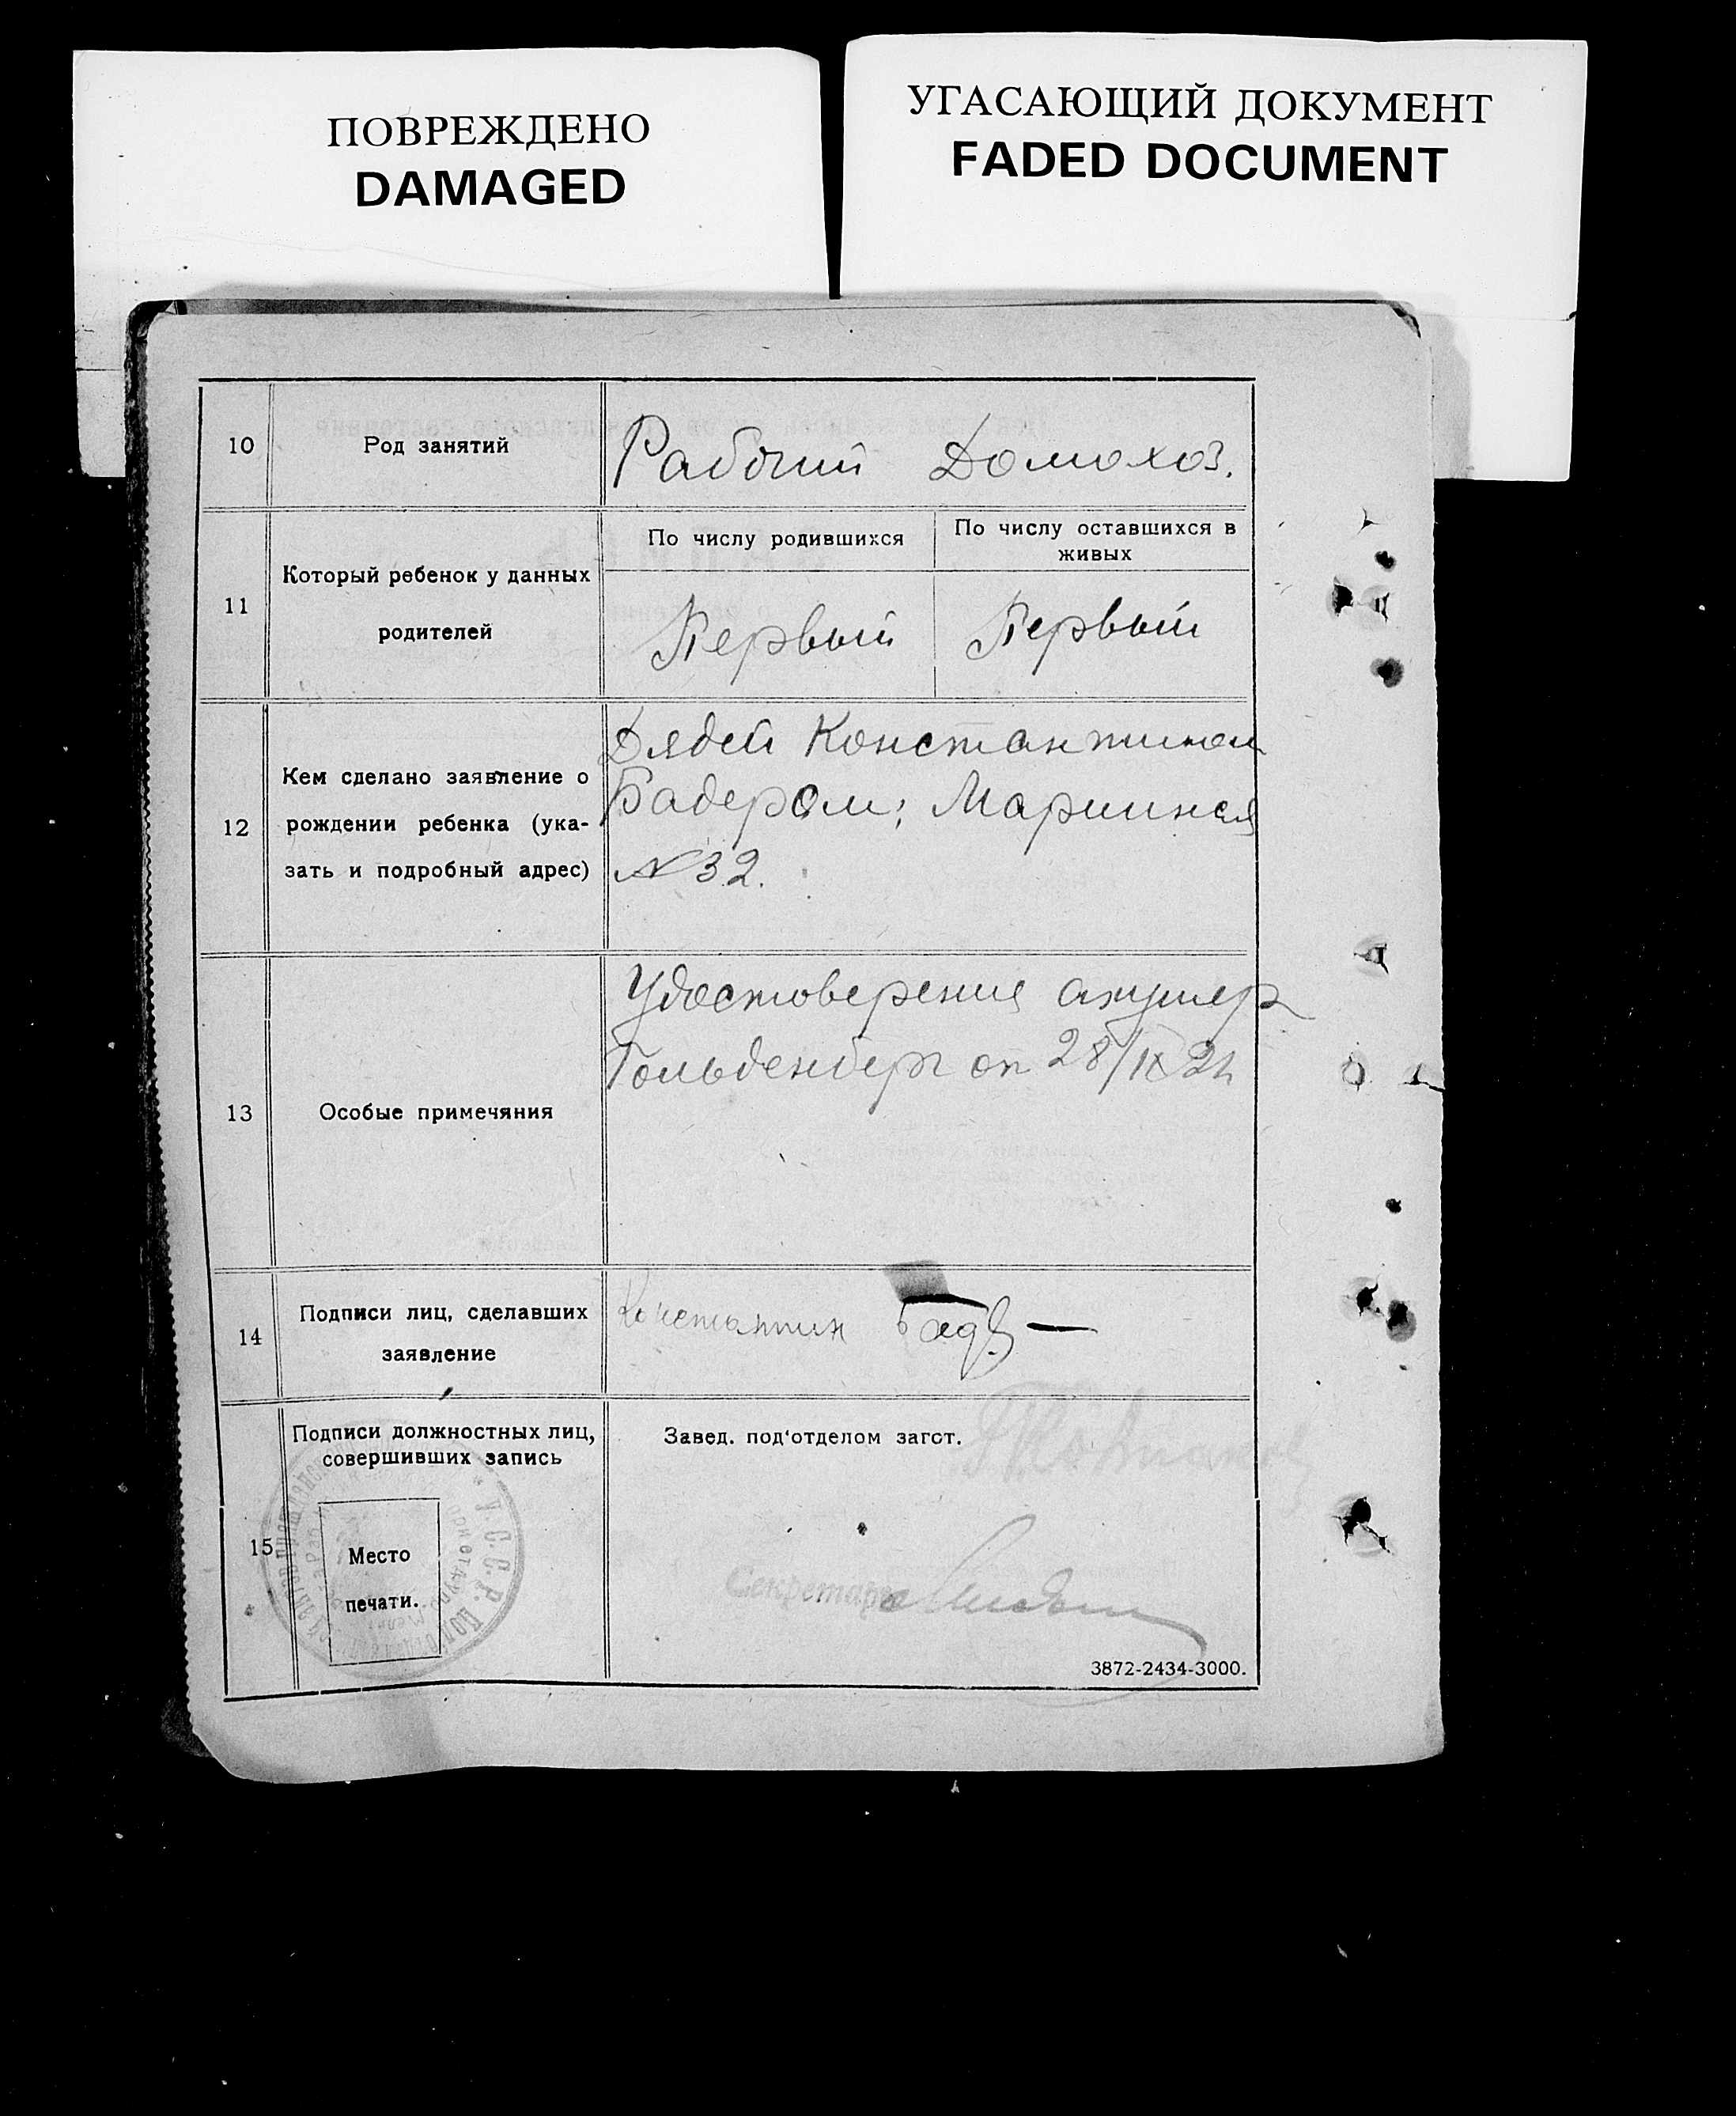 ПОВРЕЖДЕНО
DAMAGED
УГАСАЮЩИЙ ДОКУМЕНТ
FADED DOCUMENT
10
Род занятий
Рабочий Домохоз.
11
Который ребенок у данных
родителей
По числу родившихся
По числу оставшихся в
живых
Первый
Первый
12
Кем сделано заявление о
рождении ребенка (ука-
зать и подробный адрес)
Дядей Константином
Бадером; Мариинская
№32.
13
Особые примечяния
Удостоверения акушер
Гольденберг от 28/IX
14
Подписи лиц, сделавших
заявление
Константин
15
Подписи должностных лиц,
совершивших запись
Место
печати.
Завед. под'отделом загст.
Секретарь
3872-2434-3000.